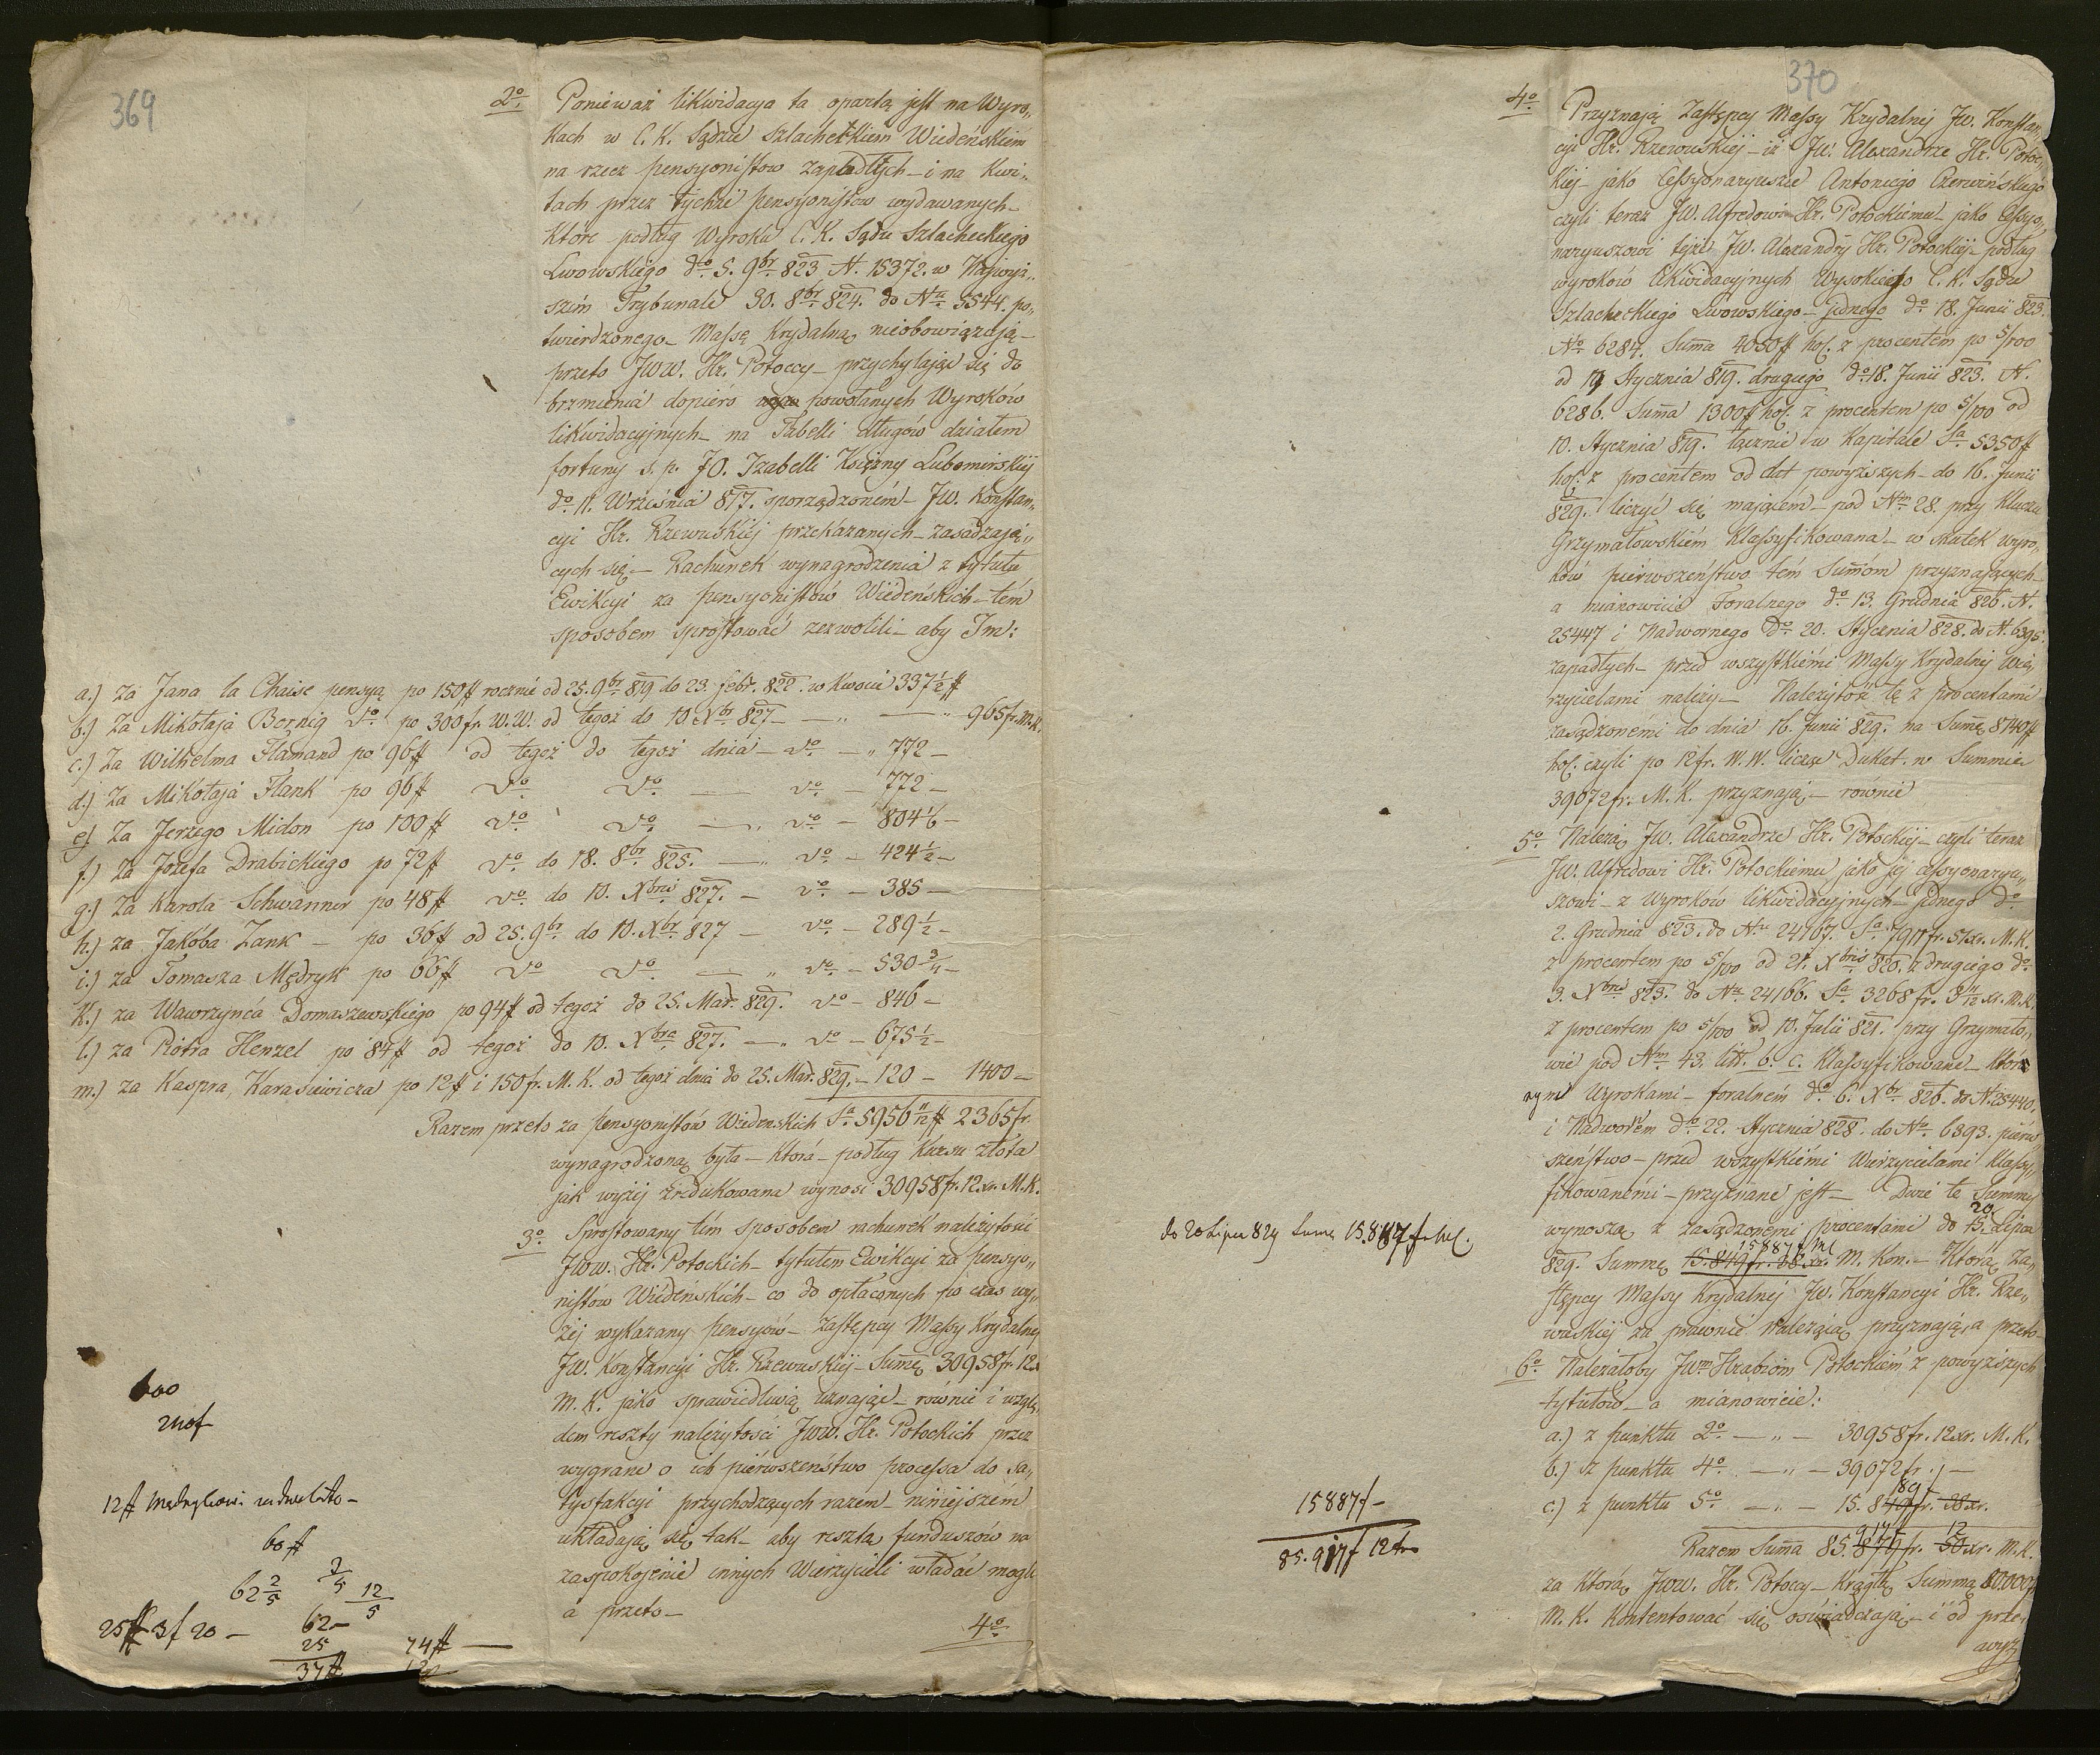 369
2o. Ponieważ likwidacya ta opartą jest na Wyro„
kach w C. K. Sądzie Szlacheckiem Wiedeńskiem
na rzecz pensyonistow zapadłych – i na Kwi„
tach przez tychże pensyonistow wydawanych –
ktore podług Wyroku C. K. Sądu Szlacheckiego
Lwowskiego do. 5. 9br. 823 N. 15372. w Najwyż„
szem Trybunale 30. 8br. 824. do Nru. 5544. po„
twierdzonego – Massę Krydalną nieobowiązują –
przeto JWW. Hr. Potoccy – przychylając się do
brzmienia dopiero powołanych Wyroków
likwidacyjnych – na Tabelli długów działem
fortuny s. p. JO. Izabelli Xiężny Lubomirskiej
do. 11. Września 817. sporządzoném – JW. Konstan„
cyi Hr. Rzewuskiéj przekazanych – zasadzają„
cych się – Rachunek wynagrodzenia z tytułu
Ewikcyi za pensyonistów Wiedeńskich – tém
sposobem sprostować zezwolili – aby Im:
a.) za Jana la Chaise pensyą po 150 # rocznie od 25. 9br. 819 do 23. febr. 822. w kwocie 337 1/2 #
b.) za Mikołaja Bornig do. po 300 fr. W. W. od tegoż do 10 Xbr. 827 – — „ — „ 965 fr. M. K.
c.) za Wilhelma Flamand po 96 # od tegoż do tegoż dnia – do. – „ 772 –
d.) za Mikołaja Flank po 96 # do. do. — do. – 772 –
e) za Jerzego Midon po 100 # do. do. — „ do. – 804 1/6 –
f.) za Józefa Drabickiego po 72 # do. do 18. 8br. 825. — „ do. – 424 1/2 –
g.) za Karola Schwanner po 48 # do. do 10. Xbris 827. – do. – 385 –
h.) za Jakóba Zank – po 36 # od 25. 9br. do 10. Xbr. 827 – do. – 289 1/2 –
i.) za Tomasza Mędryk po 66 # do do. — „ do. – 530 3/4 –
k.) za Wawrzyńca Domaszewskiego po 94 # od tegoż do 25. Mar. 829. do – 846 –
l.) za Piotra Henzel po 84 # od tegoż do 10. Xbra 827. — „ do – 675 1/2 –
m.) za Kaspra Karasiewicza po 12 # i 150 fr. M. K. od tegoż dnia do 25. Mar. 829. – 120 – 1400 –
Razem przeto za pensyonistów Wiedeńskich Sa. 5956 11/12 # 2365 fr.
wynagrodzoną była – która – podług Kursu złóta
jak wyżej zredukowana wynosi 30958 fr. 12 xr. M. K.
3o. Sprostowany tém sposobem rachunek należytości
JWW. Hr. Potockich – tytułem Ewikcyi za pensyo„
nistów Wiedeńskich – co do opłaconych po czas wy„
żej wykazany pensyów – Zastępcy Massy Krydalnej
JW. Konstancyi Hr. Rzewuskiéj – Sumę 30958 fr. 12 x
M. K. jako sprawiedliwą uznając – równie i wzglę„
dem reszty należytości JWW. Hr. Potockich przez
wygrane o ich pierwszeństwo processa do sa„
tysfakcyi przychodzących razem – niniejszém
układają się tak – aby resztą funduszów na
zaspokojenie innych Wierzycieli władać mogli
a przeto –
4o.
600
12 # Mędrykowi
60 #
62 2/5 2/5 12/5
25 # 3 f 20 – 62 –
25 74 # —
37 #
370
4o. Przyznają Zastępcy Massy Krydalnéj JW. Konstan„
cyi Hr. Rzewuskiéj – iż JW. Alexandrze Hr. Potoc„
kiéj – jako Cessyonaryuszce Antoniego Czerwińskiego
czyli teraz JW. Alfredowi Hr. Potockiemu – jako Cessyo„
naryuszowi téjże JW. Alexandry Hr. Potockiéj – podług
wyroków likwidacyjnych Wysokiego C. K. Sądu
Szlacheckiego Lwowskiego – jednego do. 18. Junii 823.
No. 6284. Suma 4050 # hol. z procentem po 5/100
od 19 Stycznia 819. drugiego do. 18. Junii 823. N.
6286. Suma 1300 # hol. z procentem po 5/100 od
10. Stycznia 819. łącznie w Kapitale Sa. 5350 #
hol. z procentem od dat powyższych – do 16. Junii
829. liczyć się mającém – pod Nrm. 28. przy Kluczu
Grzymałowskiém klassyfikowana – w skutek wyro„
ków pierwszeństwo tém Sumom przyznających –
a mianowicie Foralnego do. 13. Grudnia 826. N.
25447 i Nadwornego do. 20. Stycznia 828. do N. 6395.
zapadłych – przed wszystkiémi Massy Krydalnéj Wie„
rzycielami należy – Należytość tę z procentami
zasądzonémi do dnia 16. Junii 829. na Sumę 8140 #
hol. czyli po 12 fr. W. W. licząc Dukat. w Summie
39072 fr. M. K. przyznają – równie
5o. Należą JW. Alexandrze Hr. Potockiéj – czyli teraz
JW. Alfredowi Hr. Potockiemu jako jej cessyonaryu„
szowi – z Wyroków likwidacyjnych – jednego do.
2. Grudnia 823. do Nru. 24167. Sa. 7917 fr. 51 xr. M. K.
z procentem po 5/100 od 21. Xbris 820. z drugiego do.
3. Xbris 823. do Nru. 24166. Sa. 3268 fr. 3 11/12 xr. M. K.
z procentem po 5/100 od 10. Julii 821. przy Grzymało„
wie pod Nrm. 43. litt. b. c. klassyfikowane – któ
rym Wyrokami – foralném do. 6. Xbr. 826. do N. 25440.
i Nadworém do. 22. Stycznia 828. do No. 6393. pierw„
szeństwo – przed wszystkiémi Wierzycielami klassy„
fikowanémi – przyznane jest – Dwie te Summy
wynoszą z zasądzonemi procentami do 15. 20 Lipca
do 20 Lipca 829 Sumę 15.887 f M.
829. Summę 15.849 fr. 38 xr. 15887 f M. Kon. – Którą Za„
stępcy Massy Krydalnéj JW. Konstancyi Hr. Rze„
wuskiéj za prawnie należącą przyznają, a przeto –
6o. Należałoby JWm Hrabiom Potockiém z powyższych
tytułów – a mianowicie:
a.) z punktu 2o. — „ – 30958 fr. 12 xr. M. K.
b.) z punktu 4o. — „ – 39072 fr. „ –
c.) z punktu 5o. — „ – 15.849 fr. 38 xr.
15887 f –
85.917 f 12 xr
Razem Suma 85.879 fr. 50 xr. M. K. 917 f 12
za którą JWW. Hr. Potoccy – krągłą Summą 80.000 f
M. K. kontentować się oświadczają – i od prze„
wyż